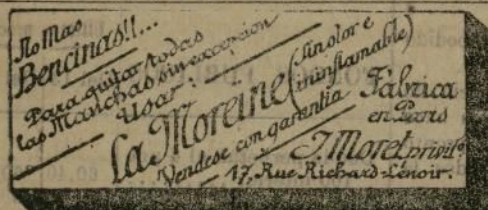 No Mas
Bencinas!!...
Para quitar todas
las Manchas sin excepcion
Usar:
La Moreine (sin olor e
ininflamable)
Vendese con garantia
Fábrica
en Paris
J. Moret privil.º
17, Rue Richard-Lenoir.